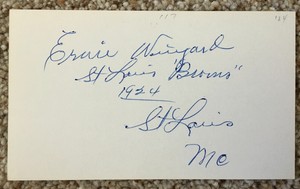 Ernie Wingard
St Louis "Browns"
1924
St Louis
Mo